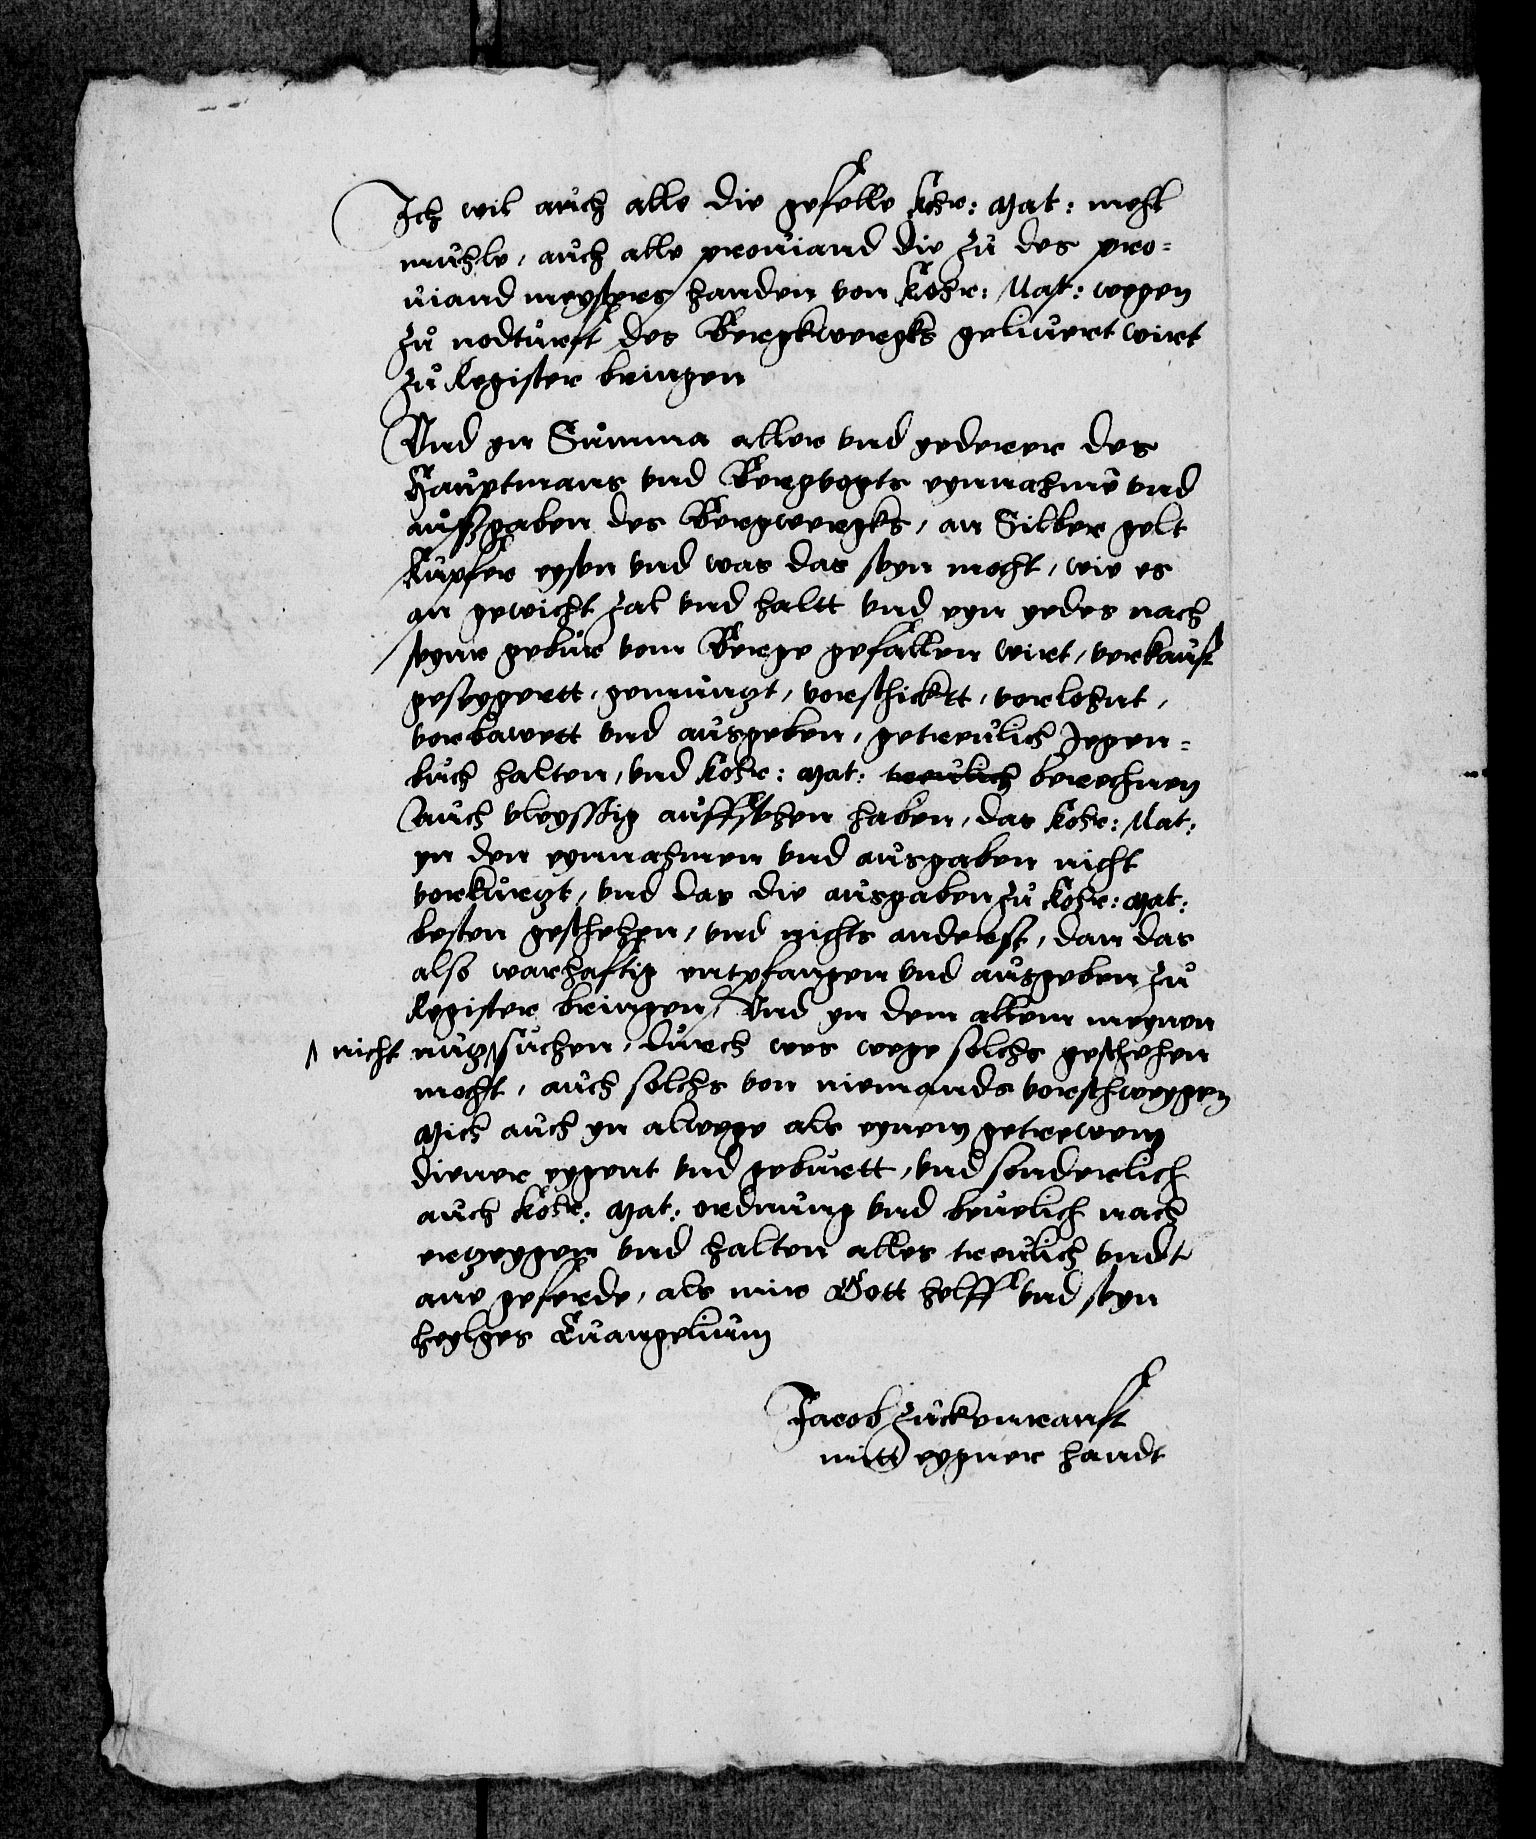 Ich wil auch alle die gefelle Kohr: Mat: mehl
muhle, auch alle prouiand die zu des pro-
uiand meysters handen von Kohr: Mat: wegen
zu nodturft des Bergkwergks geliuert wirt
zu Register bringen
Vnd yn Summa aller vnd yederer des
Hauptmans vnd Bergvogts eynnahme vnd
außgaben des Bergwergks, an Silber gelt
Kupfer eysen vnd was das seyn mocht, wie es
an gewicht zal vnd haltt vnd eyn yedes nach
seynr gebur vom Berge gefallen wirt, verkauft
geseygertt, gemuntzt, vorschicktt, vorlohnt,
vorbawett vnd ausgeben, getreulich Jegen-
buch halten, vnd Kohr: Mat: treulich berechnen
Auch vleyssig auffsehen haben, das Kohr: Mat:
yn den eynnahmen vnd ausgaben nicht
vorkurtzt, vnd das die ausgaben zu Kohr: Mat:
besten geschehen, vnd nichts anderst, dan das
also warhaftig entpfangen vnd ausgeben zu
Register bringen, Vnd yn dem allem meynen
nicht nutz suchen, durch wes wege solchs geschehen
mocht, auch solchs von niemands vorschweygen
Mich auch yn alwege als eynem getrewem
diener eygent vnd geburtt, vnd sonderlich
auch Kohr: Mat: ordnung vnd beuelich nach
ertzeygen vnd halten alles treulich vndt
ane geferde, als mir Gott helff vnd seyn
heylges Euangelium
Jacob Zuckenranft
mitt eygner handt